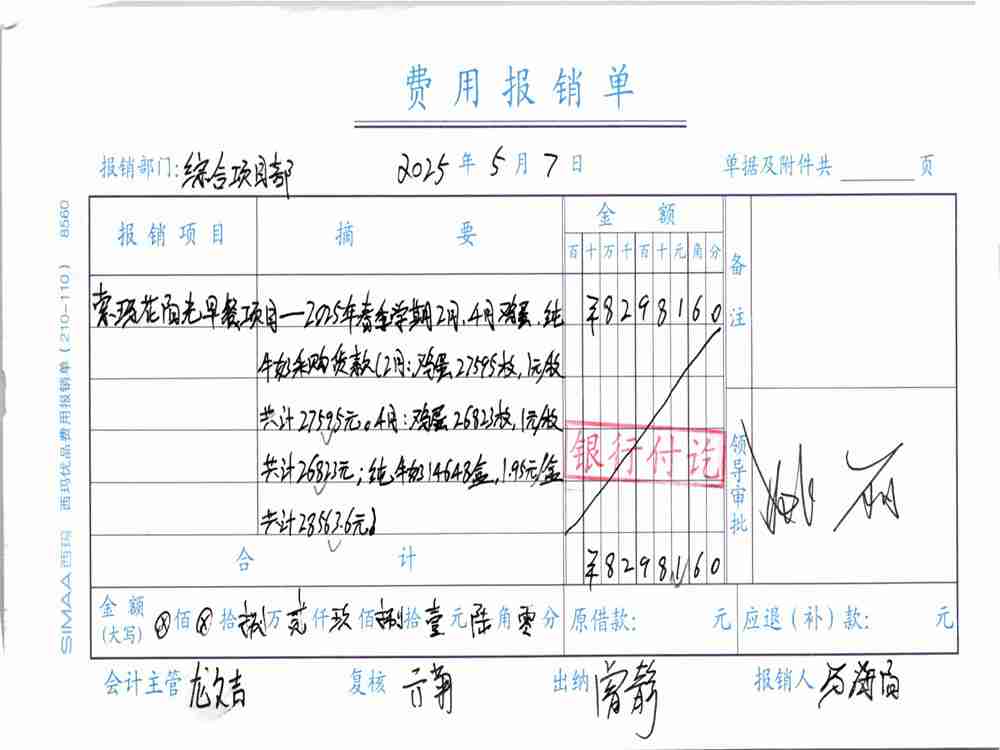 费用报销单
报销部门：综合项目部 2025年5月7日 单据及附件共 页
报销项目 摘要 金额 备注
百十万千百十元角分
索玛花阳光早餐项目—2025年春季学期2月、4月鸡蛋、纯 ¥8298160
牛奶采购货款（2月：鸡蛋27595枚，1元/枚
共计27595元。4月：鸡蛋26823枚，1元/枚
银行付讫
领导审批
共计26823元；纯牛奶14648盒，1.95元/盒
共计28563.6元）
合计 ¥8298160
金额（大写）⊗佰⊗拾捌万贰仟玖佰捌拾壹元陆角零分 原借款： 元 应退（补）款： 元
会计主管 龙文吉 复核 出纳 曾静 报销人
SIMAA西玛 西玛优品费用报销单（210—110） 8560